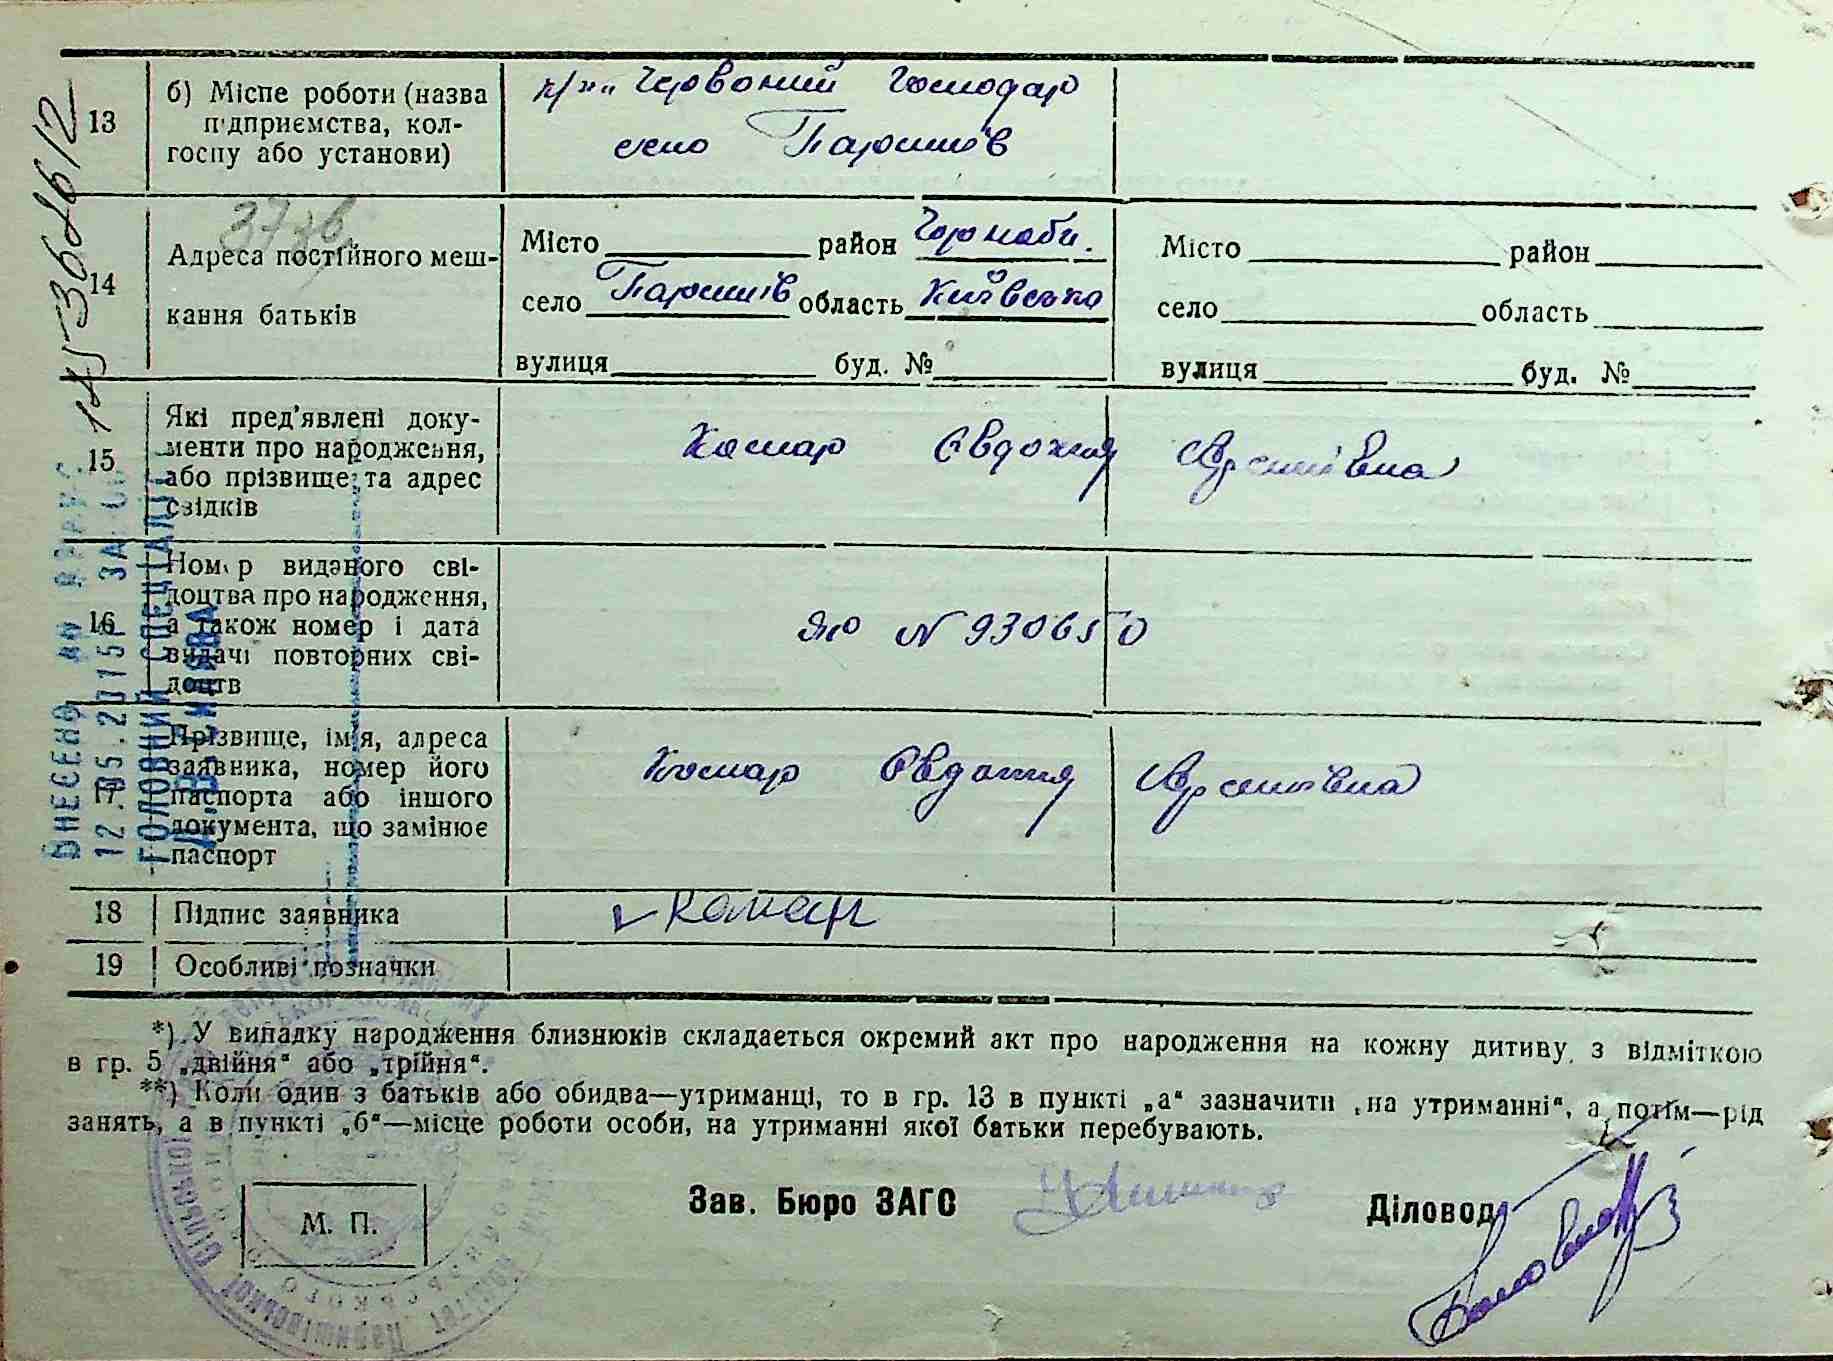 13 б) Місце роботи (назва підприємства, колгоспу або установи)
к/г „Червоний Господар
село Паришів
14 Адреса постійного мешкання батьків
Місто район Чорноби.
село Паришів область Київська
вулиця буд. №
Місто район
село область
вулиця буд. №
15 Які пред'явлені документи про народження, або прізвище та адрес свідків
Комар Євдокия Арсентівна
16 Номер виданого свідоцтва про народження, а також номер і дата видачі повторних свідоцтв
ЯЮ N 930650
17 Прізвище, ім'я, адреса заявника, номер його паспорта або іншого документа, що замінює паспорт
Комар Євдокия Арсентівна
18 Підпис заявника
Комар
19 Особливі позначки
*) У випадку народження близнюків складається окремий акт про народження на кожну дитину, з відміткою
в гр. 5 „двійня“ або „трійня“.
**) Коли один з батьків або обидва—утриманці, то в гр. 13 в пункті „а“ зазначити „на утриманні“, а потім—рід
занять, а в пункті „б“—місце роботи особи, на утриманні якої батьки перебувають.
М. П.
Зав. Бюро ЗАГС
Діловод
ВНЕСЕНО ДО ДРАЦС
12.05.2015 ЗА
ГОЛОВНИЙ СПЕЦІАЛІСТ